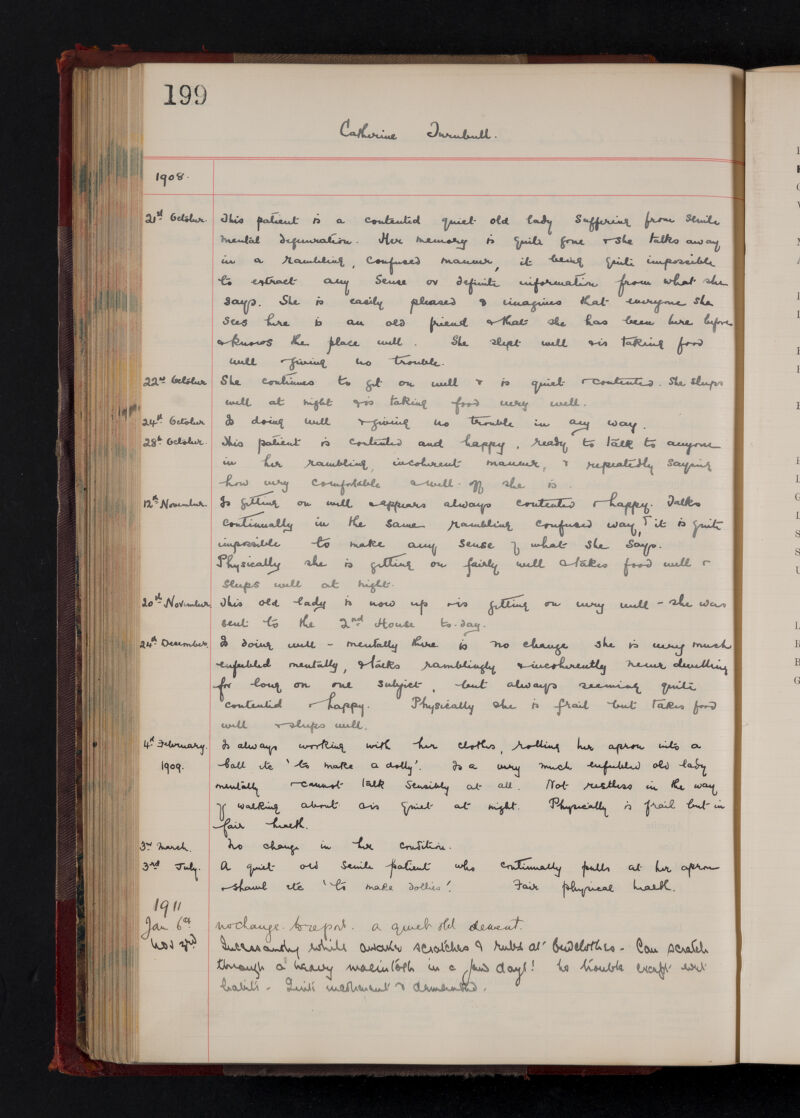 199
Catherine Turnbull.
1908.
21st October. This patient is a contented quiet old lady suffering from senile
mental degeneration. Her memory is quite gone & she talks away
in a rambling, confused manner, it being quite impossible
to extract any sense or definite information from what she
says. She is easily pleased & imagines that everyone she
sees here is an old friend & that she has been here before
& knows the place well. She slept well & is taking food
well & giving no trouble.
22nd October She continues to get on well & is quiet & contented. She sleeps
well at night & is taking food very well.
24th October Is doing well & giving no trouble in any way.
28th October. This patient is contented and happy, ready to talk to anyone
in her rambling, incoherent manner, & repeatedly saying
how very comfortable & well-off she is.
12th November. Is getting on well & appears always contented & happy. Talks
continually in the same rambling confused way, & it is quite
impossible to make any sense of what she says.
Physically she is getting on fairly well & takes food well &
sleeps well at night.
20th November This old lady is now up & is getting on very well - she was
sent to the 2nd House to-day.
24th December Is doing well - mentally there is no change she is very much
enfeebled mentally, & talks ramblingly & incoherently never dwelling
for long on one subject, but always seeming quite
contented & happy. Physically she is frail but takes food
well & sleeps well.
4th February. Is always working with her clothes, rolling her apron into a
1909. ball etc 'to make a dolly'. Is a very much enfeebled old lady
mentally & cannot talk sensibly at all. Not restless in the way
of walking about & is quiet at night. Physically is frail but in
fair health.
3rd March. No change in her condition.
3rd July. A quiet old senile patient who continually pulls at her apron
& shawl etc 'to make dollies'. Fair physical health.
1911
Jan 6th no change to report. a quiet old dement.
Nov 2nd Incessantly while awake scratches & rubs at bedclothes - Can scratch
through a heavy macintosh in a few days! No trouble except wet
habits - Quite incoherent & demented.